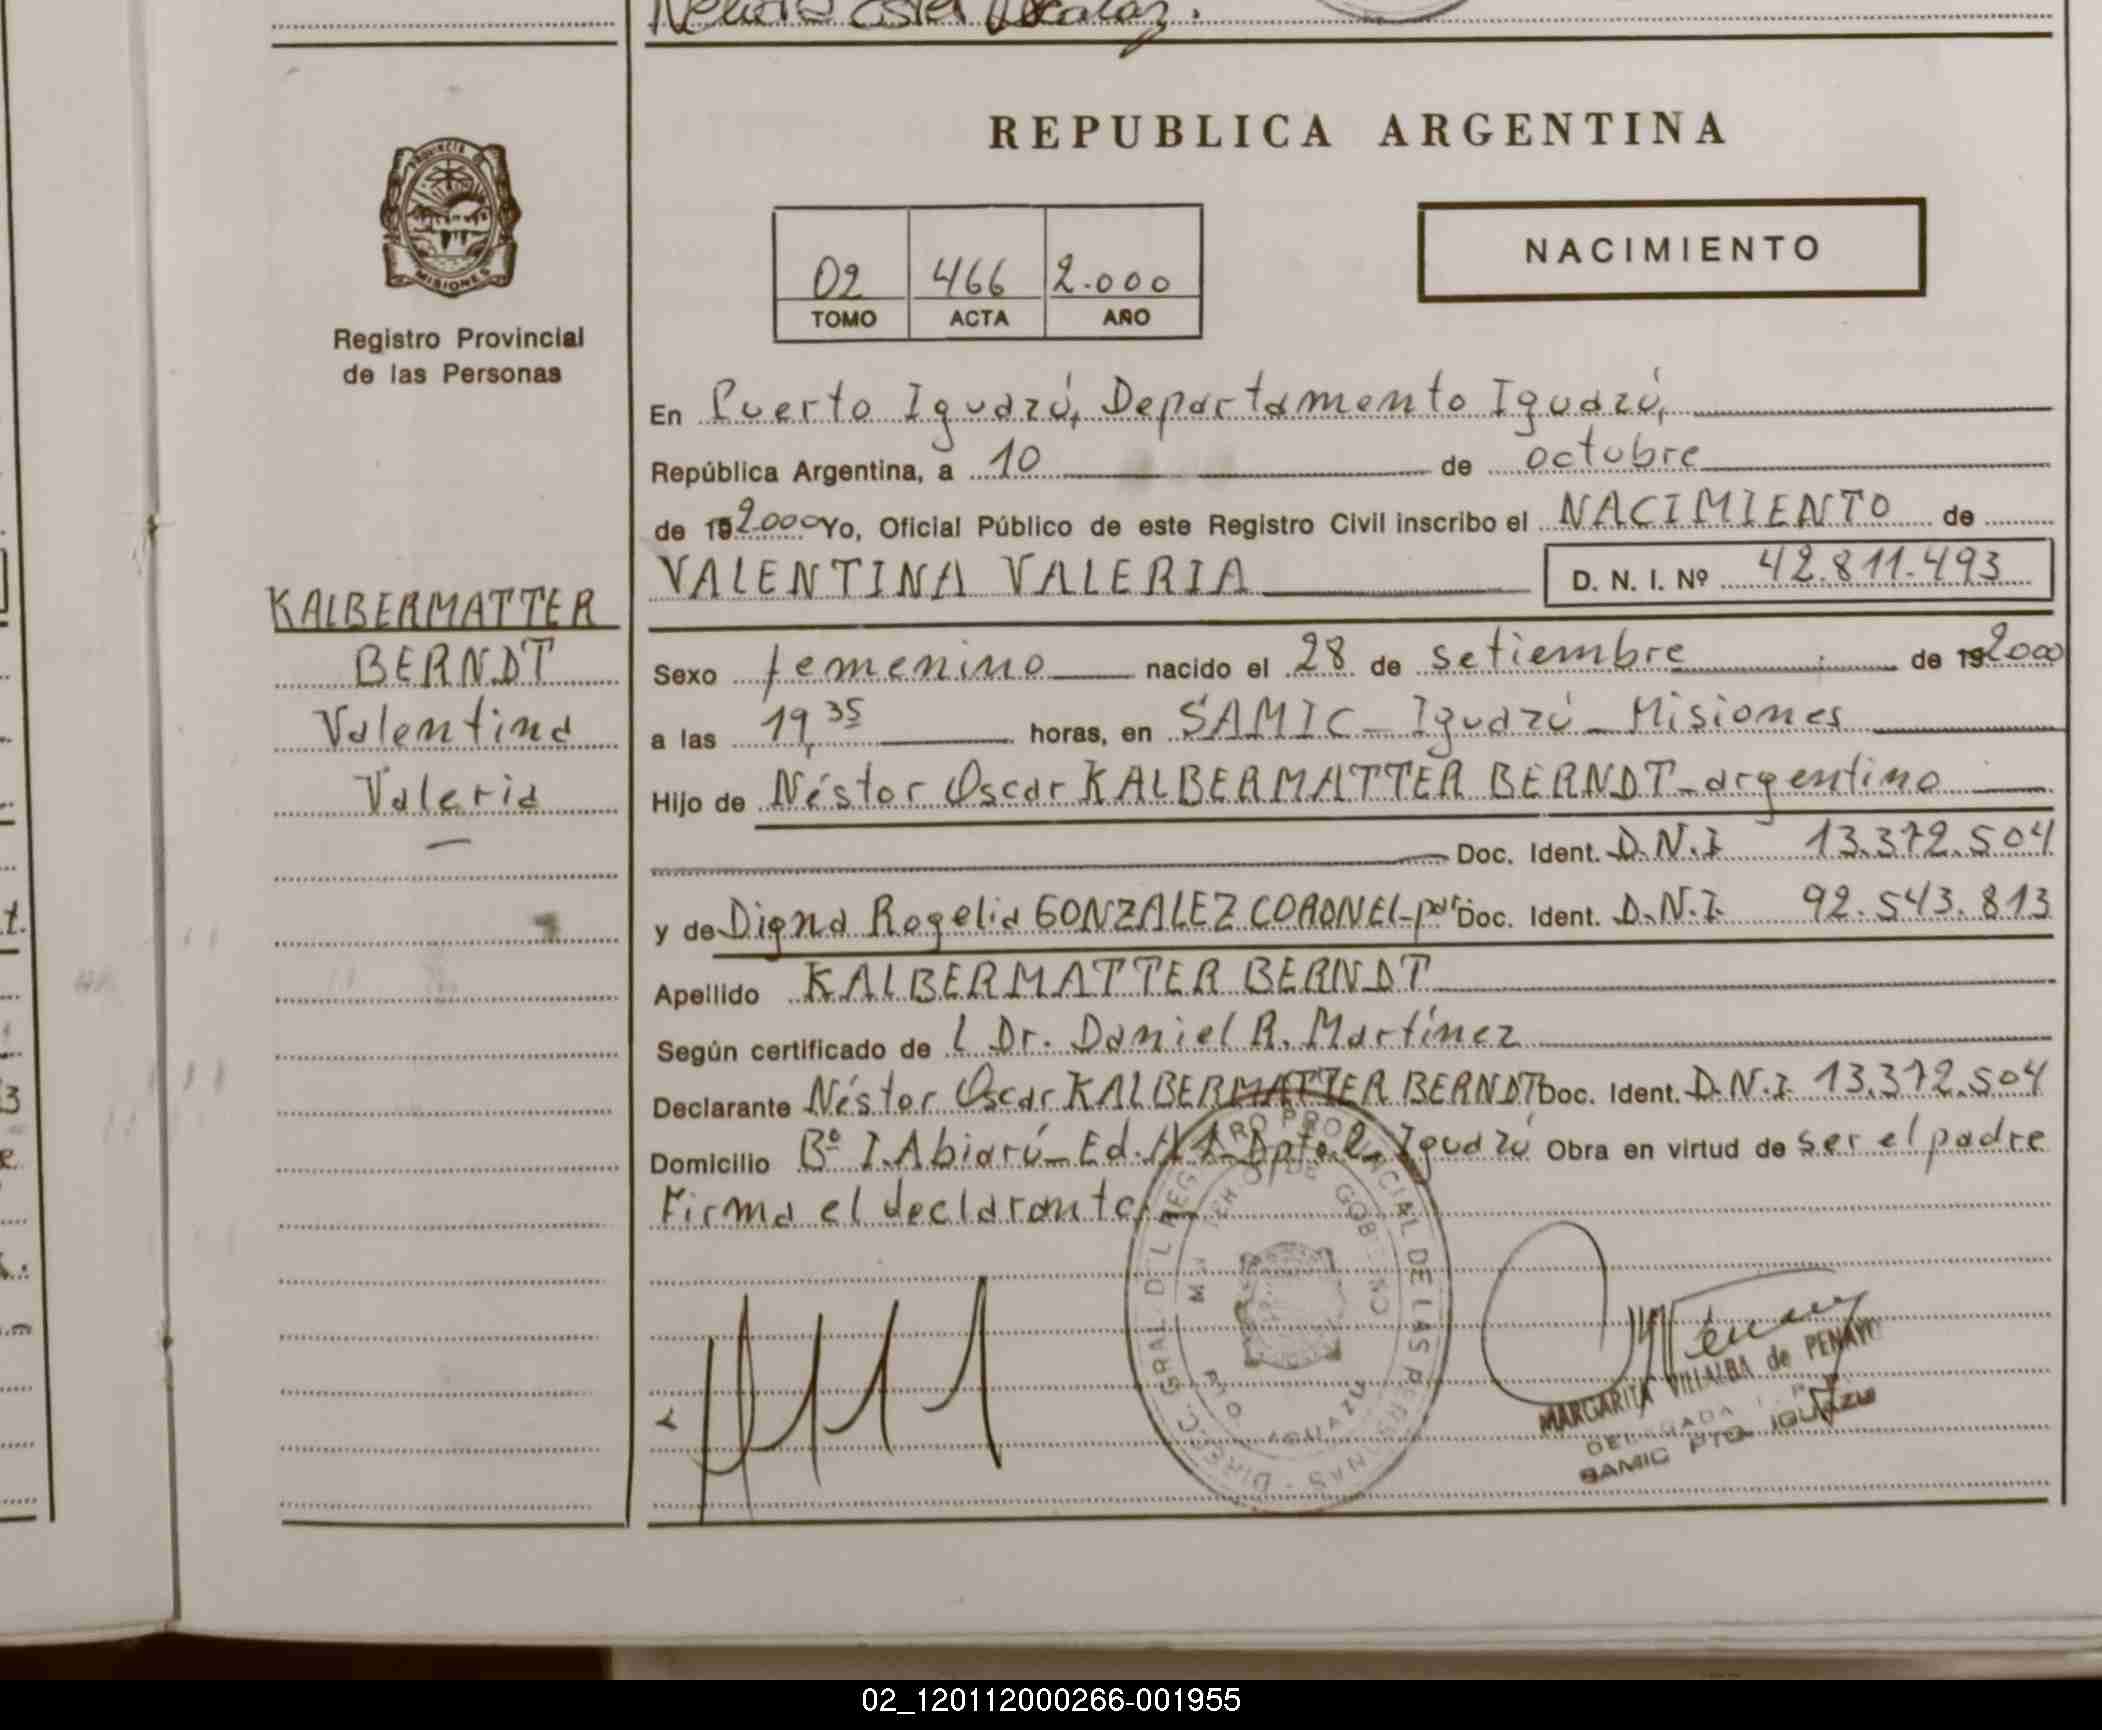 REPUBLICA ARGENTINA
PROVINCIA DE
MISIONES
Registro Provincial
de las Personas
02 466 2.000
TOMO ACTA AÑO
NACIMIENTO
En Puerto Iguazú, Departamento Iguazú,
República Argentina, a 10 de octubre
de 19 2000 Yo, Oficial Público de este Registro Civil inscribo el NACIMIENTO de
VALENTINA VALERIA D. N. I. Nº 42.811.493
KALBERMATTER
BERNDT
Valentina
Valeria
Sexo femenino nacido el 28 de setiembre de 19 2000
a las 19,35 horas, en SAMIC - Iguazú - Misiones
Hijo de Néstor Oscar KALBERMATTER BERNDT - argentino
Doc. Ident. D.N.I 13.372.504
y de Digna Rogelia GONZALEZ CORONEL - par. Doc. Ident. D.N.I. 92.543.813
Apellido KALBERMATTER BERNDT
Según certificado de l Dr. Daniel R. Martínez
Declarante Néstor Oscar KALBERMATTER BERNDT Doc. Ident. D.N.I. 13.372.504
Domicilio Bº I. Abiarú - Ed. Iguazú Obra en virtud de ser el padre
Firma el declarante
DIRECC. GRAL. DEL REGISTRO PROVINCIAL DE LAS PERSONAS
GOBIERNO
PTO. IGUAZU
MARGARITA VILLALBA de PENAYO
DELEGADA
SAMIC PTO. IGUAZU
02_120112000266-001955